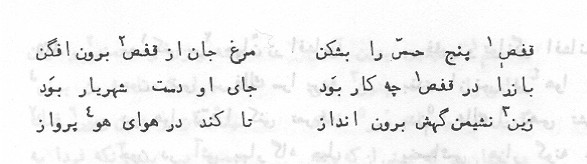 قفص۱ پنج حسّ را بشکن مرغ جان از قفص۲ برون افگن
باز را در قفص۱ چه کار بوَد جای او دست شهریار بوَد
زین۳ نشیمن گهش برون انداز تا کند در هوای هو۴ پرواز